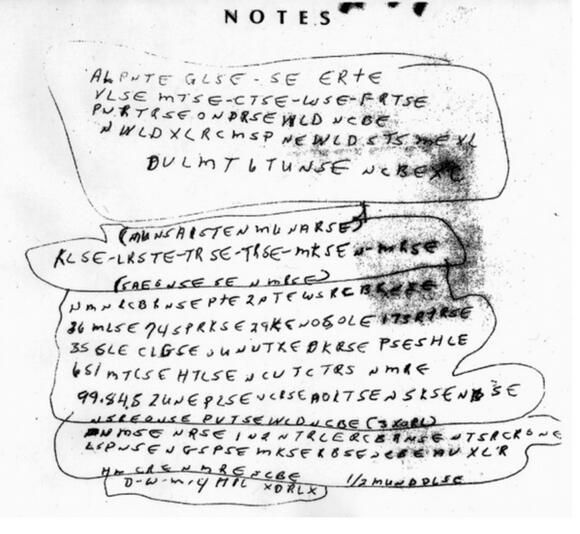 NOTES
ALPNTE GLSE-SE ERTE
VLSE MTSE-CTSE-WSE-FRTSE
PVRTRSEONDRSEWLD NCBE
NWLDXLRCMSP NEWLDSTS ME XL
DULMT 6 TUNSE NCBEXC
(MUNSAISTENMUNARSE)
KLSE-LRSTE-TRSE-TRSE-MKSEN-MRSE
(SAEGNSE SE NMRSE)
NMNRCBRNSE PTE2PTEWSRCBRNSE
36 MLSE 74SPRKSE29KENOSOLE 173RTRSE
35 GLE CLGSE UNUTXE DKRSE PSESHLE
651 MTCSE HTLSE NCUTCTRS NMRE
99.84.52UNEPLSE NCRSE AOLTSENSKSENBSE
NSREONSE PVTSEWLDNCBE (3XORL)
DNMSE NRSE IN2NTRLERCBRNSENTSRCRONE
LSPNSENGSPSE MKSERBSENCBEAUXLR
HM CRE NMRE NCBE 1/2 MUNDDLSE
D-W-M-Y MIL XDRLX